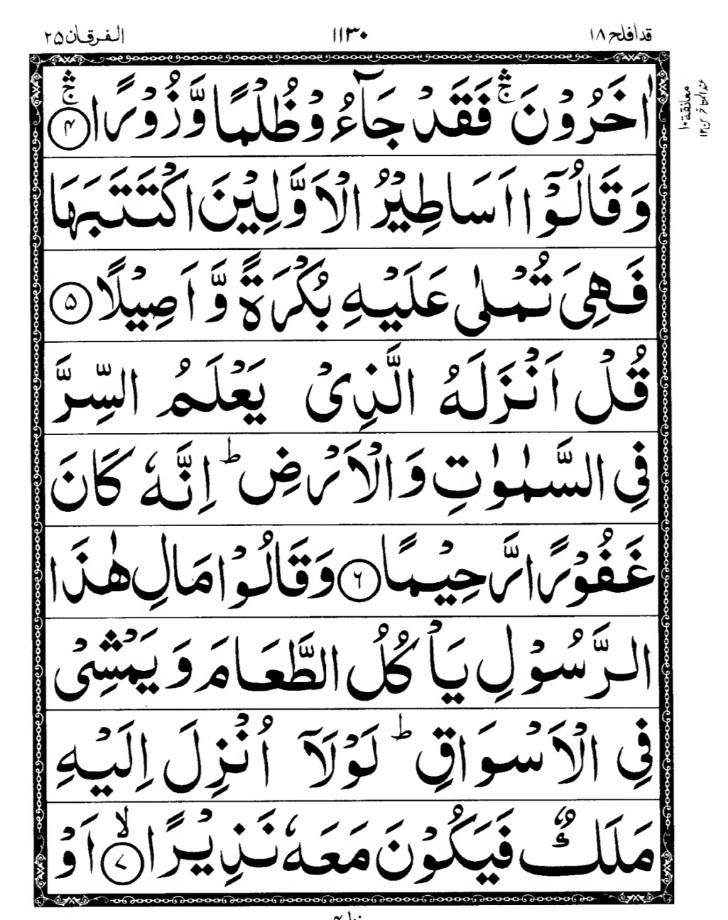 قدافلح ۱۸
۱۱۳۰
الفرقان ۲۵
اٰخَرُوْنَ ۛۚ فَقَدْ جَآءُوْ ظُلْمًا وَّزُوْرًا ۛۚ ۴
وَقَالُوْۤا اَسَاطِيْرُ الْاَوَّلِيْنَ اكْتَتَبَهَا
فَهِيَ تُمْلٰى عَلَيْهِ بُكْرَةً وَّ اَصِيْلًا ۵
قُلْ اَنْزَلَهُ الَّذِىْ يَعْلَمُ السِّرَّ
فِى السَّمٰوٰتِ وَالْاَرْضِ ؕ اِنَّهٗ كَانَ
غَفُوْرًا رَّحِيْمًا ۶ وَقَالُوْا مَالِ هٰذَا
الرَّسُوْلِ يَاْكُلُ الطَّعَامَ وَيَمْشِىْ
فِى الْاَسْوَاقِ ؕ لَوْلَاۤ اُنْزِلَ اِلَيْهِ
مَلَكٌ فَيَكُوْنَ مَعَهٗ نَذِيْرًا ۙ ۷ اَوْ
معانقة ۱۰